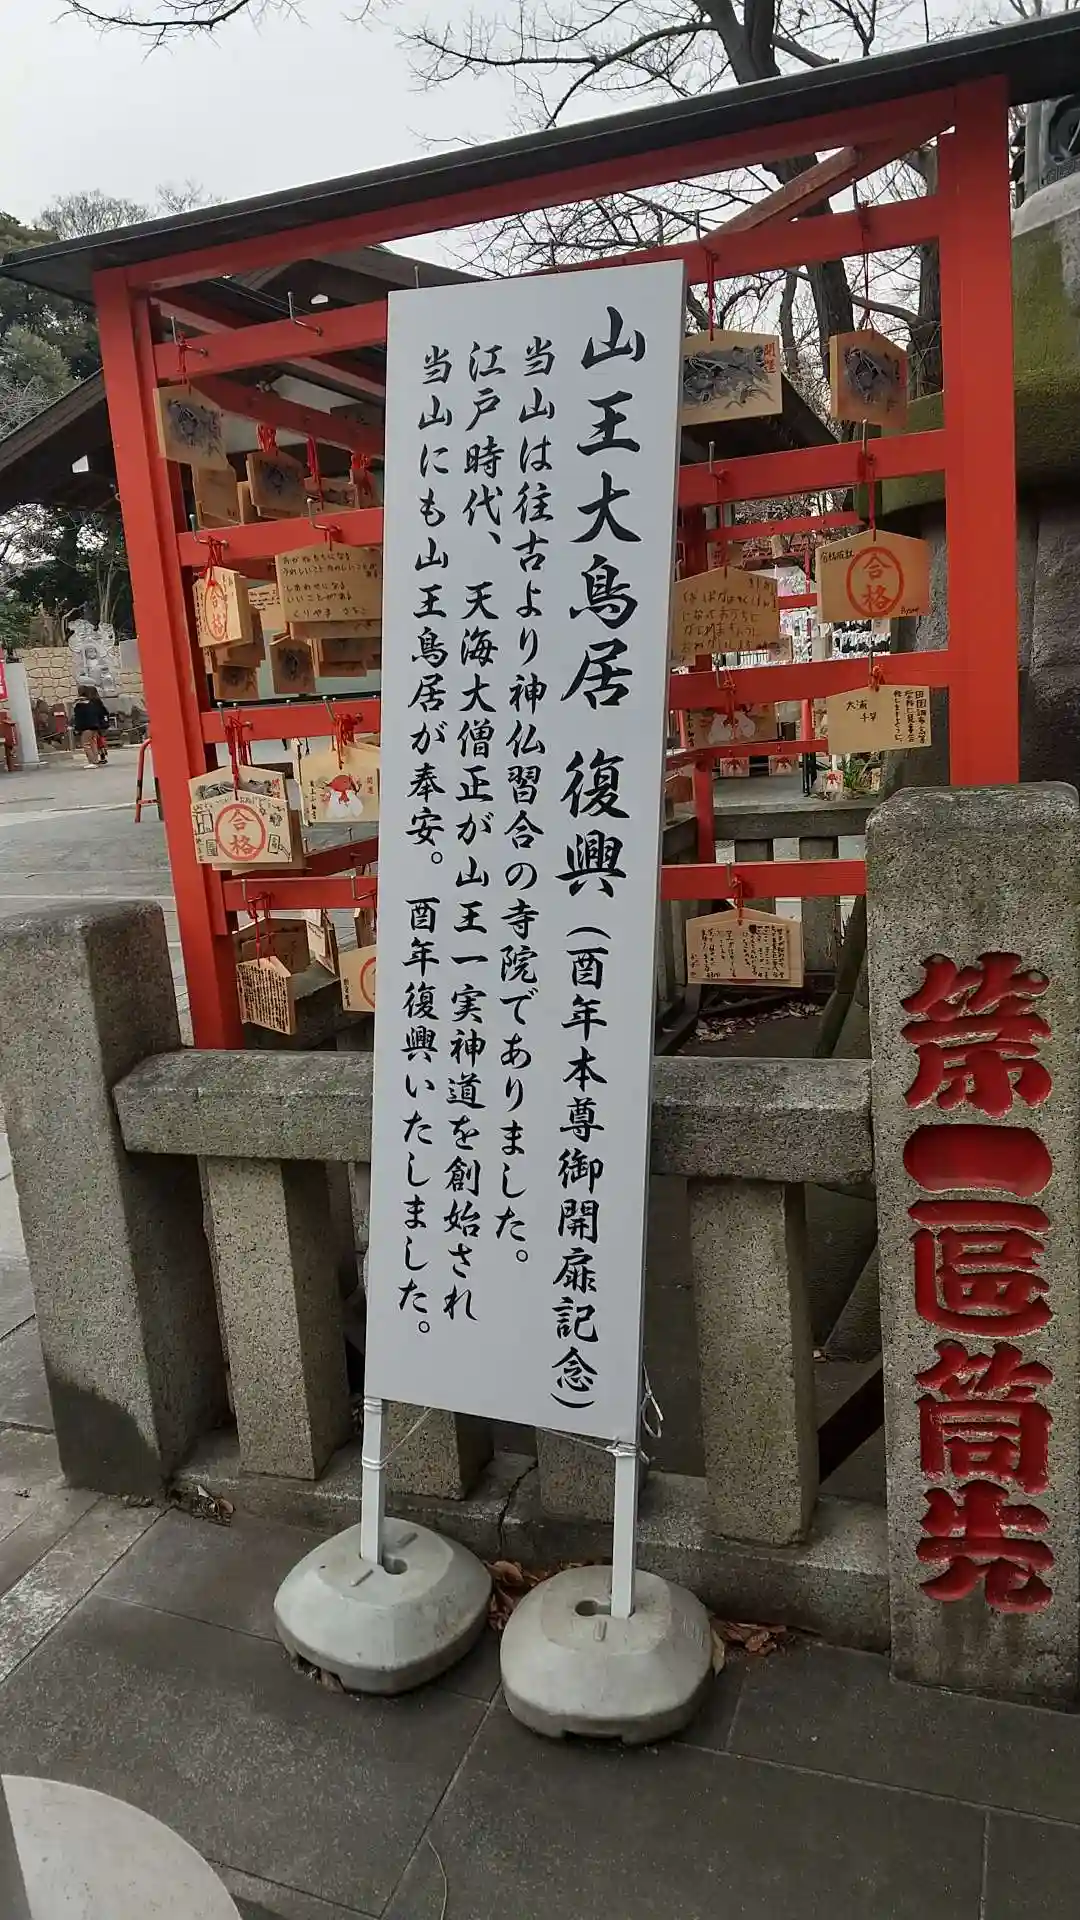 山王大鳥居 復興（酉年本尊御開扉記念）
当山は往古より神仏習合の寺院でありました。
江戸時代、天海大僧正が山王一実神道を創始され
当山にも山王鳥居が奉安。酉年復興いたしました。
第一區筒先
合格
合格
合格
開運